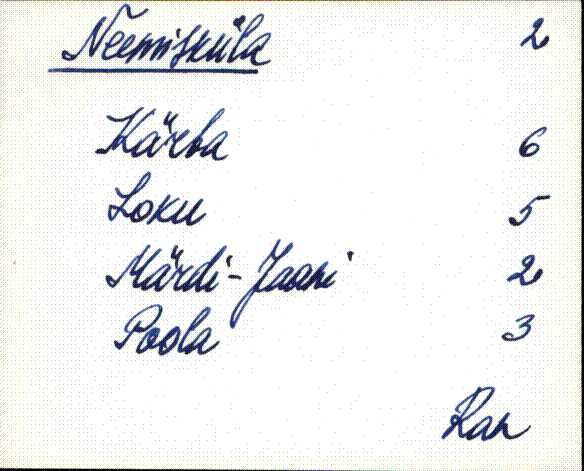 Neemisküla 2
Kärba 6
Loku 5
Märdi-Jaani 2
Poola 3
Ran